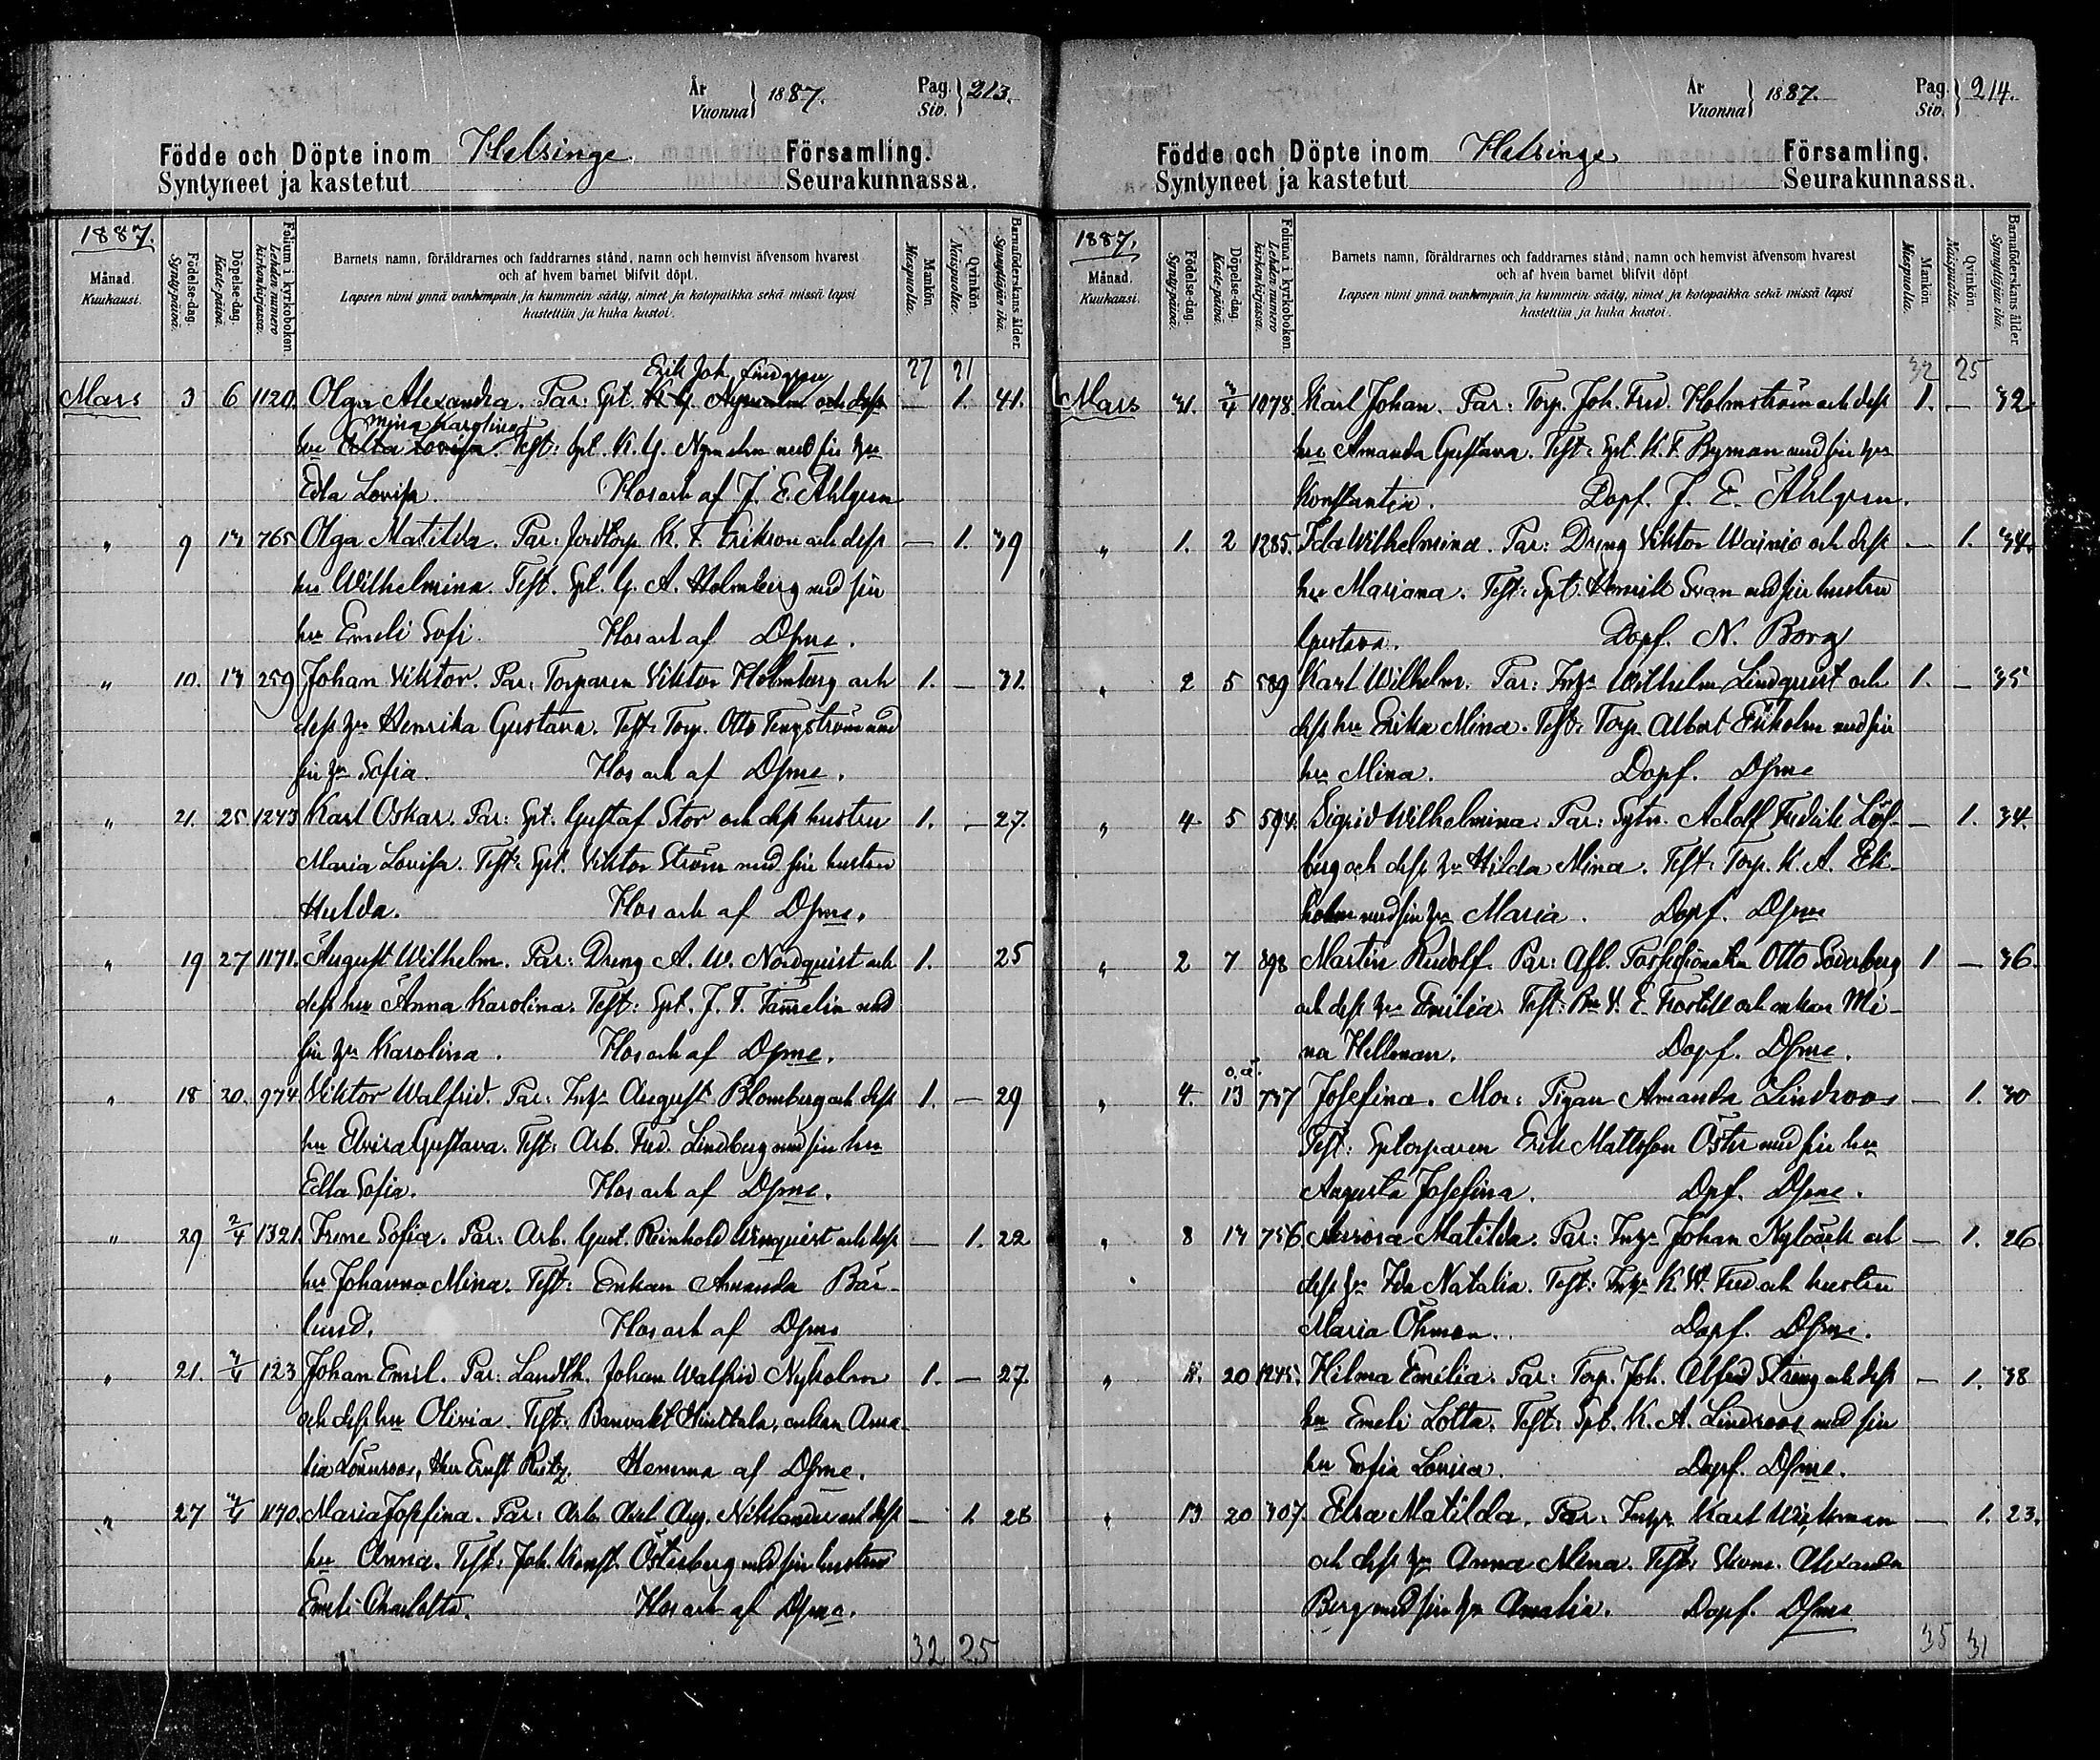 År
Vuonna } 1887.
Pag.
Siv. } 213.
Födde och Döpte inom Helsinge Församling.
Syntyneet ja kastetut Seurakunnassa.
1887.
Månad.
Kuukausi.
Födelse-dag.
Synty-päivä.
Döpelse-dag.
Kaste-päivä.
Folium i kyrkoboken.
Lehden numero kirkonkirjassa.
Barnets namn, föräldrarnes och faddrarnes stånd, namn och hemvist äfvensom hvarest
och af hvem barnet blifvit döpt.
Lapsen nimi ynnä vanhempain ja kummein sääty, nimet ja kotopaikka sekä missä lapsi
kastettiin ja kuka kastoi.
Mankön.
Miespuolia.
Qvinkön.
Naispuolia.
Barnaföderskans ålder.
Synnyttäjän ikä.
27 21
Erik Joh. Lindgren
Mars 3 6 1120. Olga Alexandra. Par: Spt. K. G. Nyman och dess — 1. 41.
Mina Karolina
hu Edla Lovisa. Test: Spt. K. G. Nyman med sin hu
Edla Lovisa. Hos och af J. E. Ahlgren
" 9 13 765 Olga Matilda. Par: Jordtorp. K. F. Erikson och dess — 1. 39
hu Wilhelmina. Test. Spt. G. A. Holmberg med sin
hu Emeli Sofi. Hos och af Dsme.
" 10. 13 259 Johan Viktor. Par: Torparen Viktor Holmberg och 1. — 31.
dess hu Henrika Gustava. Test: Torp. Otto Tengström med
sin hu Sofia. Hos och af Dsme.
" 21. 25 1243 Karl Oskar. Par: Spt. Gustaf Stor och dess hustru 1. — 27.
Maria Lovisa. Test: Spt. Viktor Ström med sin hustru
Hulda. Hos och af Dsme.
" 19 27 1171. August Wilhelm. Par: Dreng A. W. Nordquist och 1. 25
dess hu Anna Karolina. Test: Spt. J. F. Tammelin med
sin hu Karolina. Hos och af Dsme.
" 18 20. 974. Viktor Walfrid. Par: Inhs August Blomberg och dess 1. — 29
hu Elvira Gustava. Test: Arb. Fred. Lindberg med sin hu
Edla Sofia. Hos och af Dsme.
" 29 2/4 1321. Irene Sofia. Par: Arb. Gust. Reinhold och dess — 1. 22
hu Johanna Mina. Test: Enkan Amanda Bär-
lund. Hos och af Dsme
" 21. 3/4 123 Johan Emil. Par: Landtk. Johan Walfrid Nyholm 1. — 27.
och dess hu Olivia. Test: Banvakt Hinttala, enkan Ama-
lia Lönnroos, Herr Ernst Rietz. Hemma af Dsme.
" 27 3/4 1170. Maria Josefina. Par: Arb. Axel Aug. Niklander och dess — 1. 28
hu Anna. Test: Joh. Konst. Österberg med sin hustru
Emeli Charlotta. Hos och af Dsme.
32 25
År
Vuonna } 1887.
Pag.
Siv. } 214.
Födde och Döpte inom Helsinge Församling.
Syntyneet ja kastetut Seurakunnassa.
1887.
Månad.
Kuukausi.
Födelse-dag.
Synty-päivä.
Döpelse-dag.
Kaste-päivä.
Folium i kyrkoboken.
Lehden numero kirkonkirjassa.
Barnets namn, föräldrarnes och faddrarnes stånd, namn och hemvist äfvensom hvarest
och af hvem barnet blifvit döpt.
Lapsen nimi ynnä vanhempain ja kummein sääty, nimet ja kotopaikka sekä missä lapsi
kastettiin ja kuka kastoi.
Mankön.
Miespuolia.
Qvinkön.
Naispuolia.
Barnaföderskans ålder.
Synnyttäjän ikä.
32 25
Mars 31. 3/4 1078 Karl Johan. Par: Torp. Joh. Fred. Holmström och dess 1. — 32
hu Amanda Gustava. Test: Spt. K. F. Byman med sin hu
Konstantia. Döpf. J. E. Ahlgren.
" 1. 2 1285. Ida Wilhelmina. Par: Dreng Viktor Wainio och dess — 1. 34.
hu Mariana. Test: Spt. Henrik Svan med sin hustru
Gustava. Döpf. N. Borg
" 2 5 589 Karl Wilhelm. Par: Inhs Wilhelm Lindquist och 1. — 35
dess hu Erika Mina. Test: Torp. Albert Ekholm med sin
hu Mina. Döpf. Dsme
" 4 5 594. Sigrid Wilhelmina. Par: Sytn. Adolf Fredrik Löf- — 1. 34.
berg och dess hu Hilda Mina. Test: Torp. K. A. Ek-
holm med sin hu Maria. Döpf. Dsme
" 2 7 398 Martin Rudolf. Par: Afl. Possessionaten Otto Söderberg 1 — 36.
och dess hu Emilia. Test: V. E. Forstell och enkan Mi-
na Hellman. Döpf. Dsme.
o. ä.
" 4. 13 737 Josefina. Mor: Pigan Amanda Lindroos — 1. 30
Test: Sptorparen Erik Mattsson Öster med sin hu
Augusta Josefina. Dpf. Dsme.
" 8 13 756. Aurora Matilda. Par: Inhs Johan Nybäck och — 1. 26.
dess hu Ida Natalia. Test: Inhs K. W. Fred och hustru
Maria Öhman. Döpf. Dsme.
" 11. 20 1245. Hilma Emilia. Par: Torp. Joh. Alfred Streng och dess — 1. 38
hu Emeli Lotta. Test: Spt. K. A. Lindroos med sin
hu Sofia Lovisa. Döpf. Dsme.
" 13 20 307. Elsa Matilda. Par: Inhs Karl Wickman — 1. 23.
och dess hu Anna Mina. Test: Skom. Alexander
Berg med sin hu Amalia. Döpf. Dsme
35 31